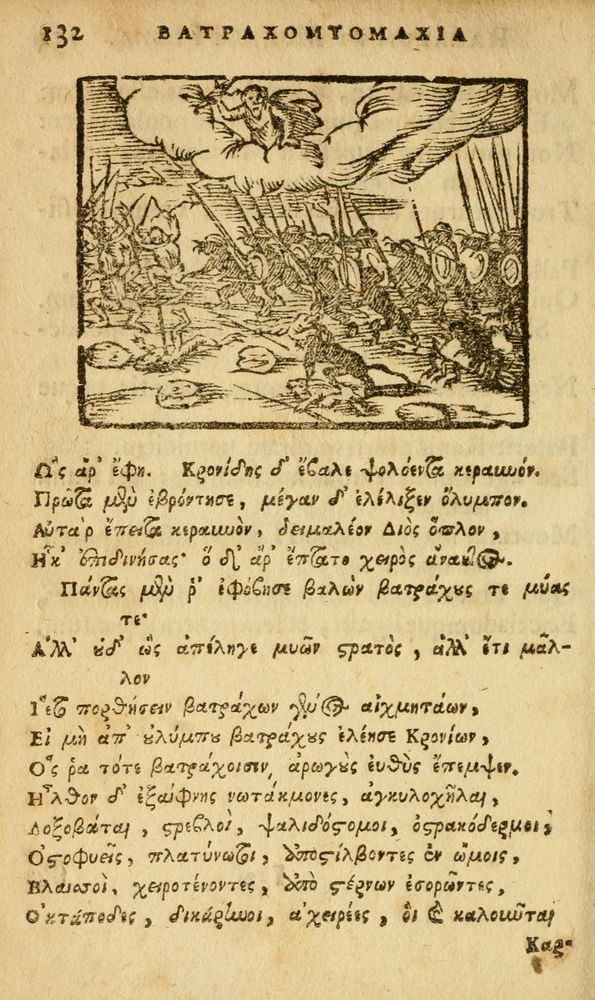 132 ΒΑΤΡΑΧΟΜΥΟΜΑΧΙΑ
Ὣς ἀρ' ἔφη. Κρονίδης δ' ἔβαλε ψολόεντα κεραυνόν.
Πρῶτα μὲν ἐβρόντησε, μέγαν δ' ἐλέλιξεν ὄλυμπον.
Αὐτὰρ ἔπειτα κεραυνὸν, δειμαλέον Διὸς ὅπλον,
Ἧκ' ἐπιδινήσας· ὁ δ' ἄρ' ἔπτατο χειρὸς ἄνακτος.
Πάντας μὲν ῥ' ἐφόβησε βαλὼν βατράχους τε μύας
τε·
Ἀλλ' οὐδ' ὣς ἀπέληγε μυῶν στρατὸς, ἀλλ' ἔτι μᾶλ-
λον
Ἵετο πορθήσειν βατράχων γένος αἰχμητάων,
Εἰ μὴ ἀπ' οὐλύμπου βατράχους ἐλέησε Κρονίων,
Ὅς ῥα τότε βατράχοισιν ἀρωγοὺς εὐθὺς ἔπεμψεν.
Ἦλθον δ' ἐξαίφνης νωτάκμονες, ἀγκυλοχῆλαι,
Λοξοβάται, στρεβλοὶ, ψαλιδόστομοι, ὀστρακόδερμοι,
Ὀστοφυεῖς, πλατύνωτοι, ἀποστίλβοντες ἐν ὤμοις,
Βλαισοὶ, χειροτένοντες, ἀπὸ στέρνων ἐσορῶντες,
Ὀκτάποδες, δικάρηνοι, ἀχειρέες, οἱ καλοιῦται
Καρ-